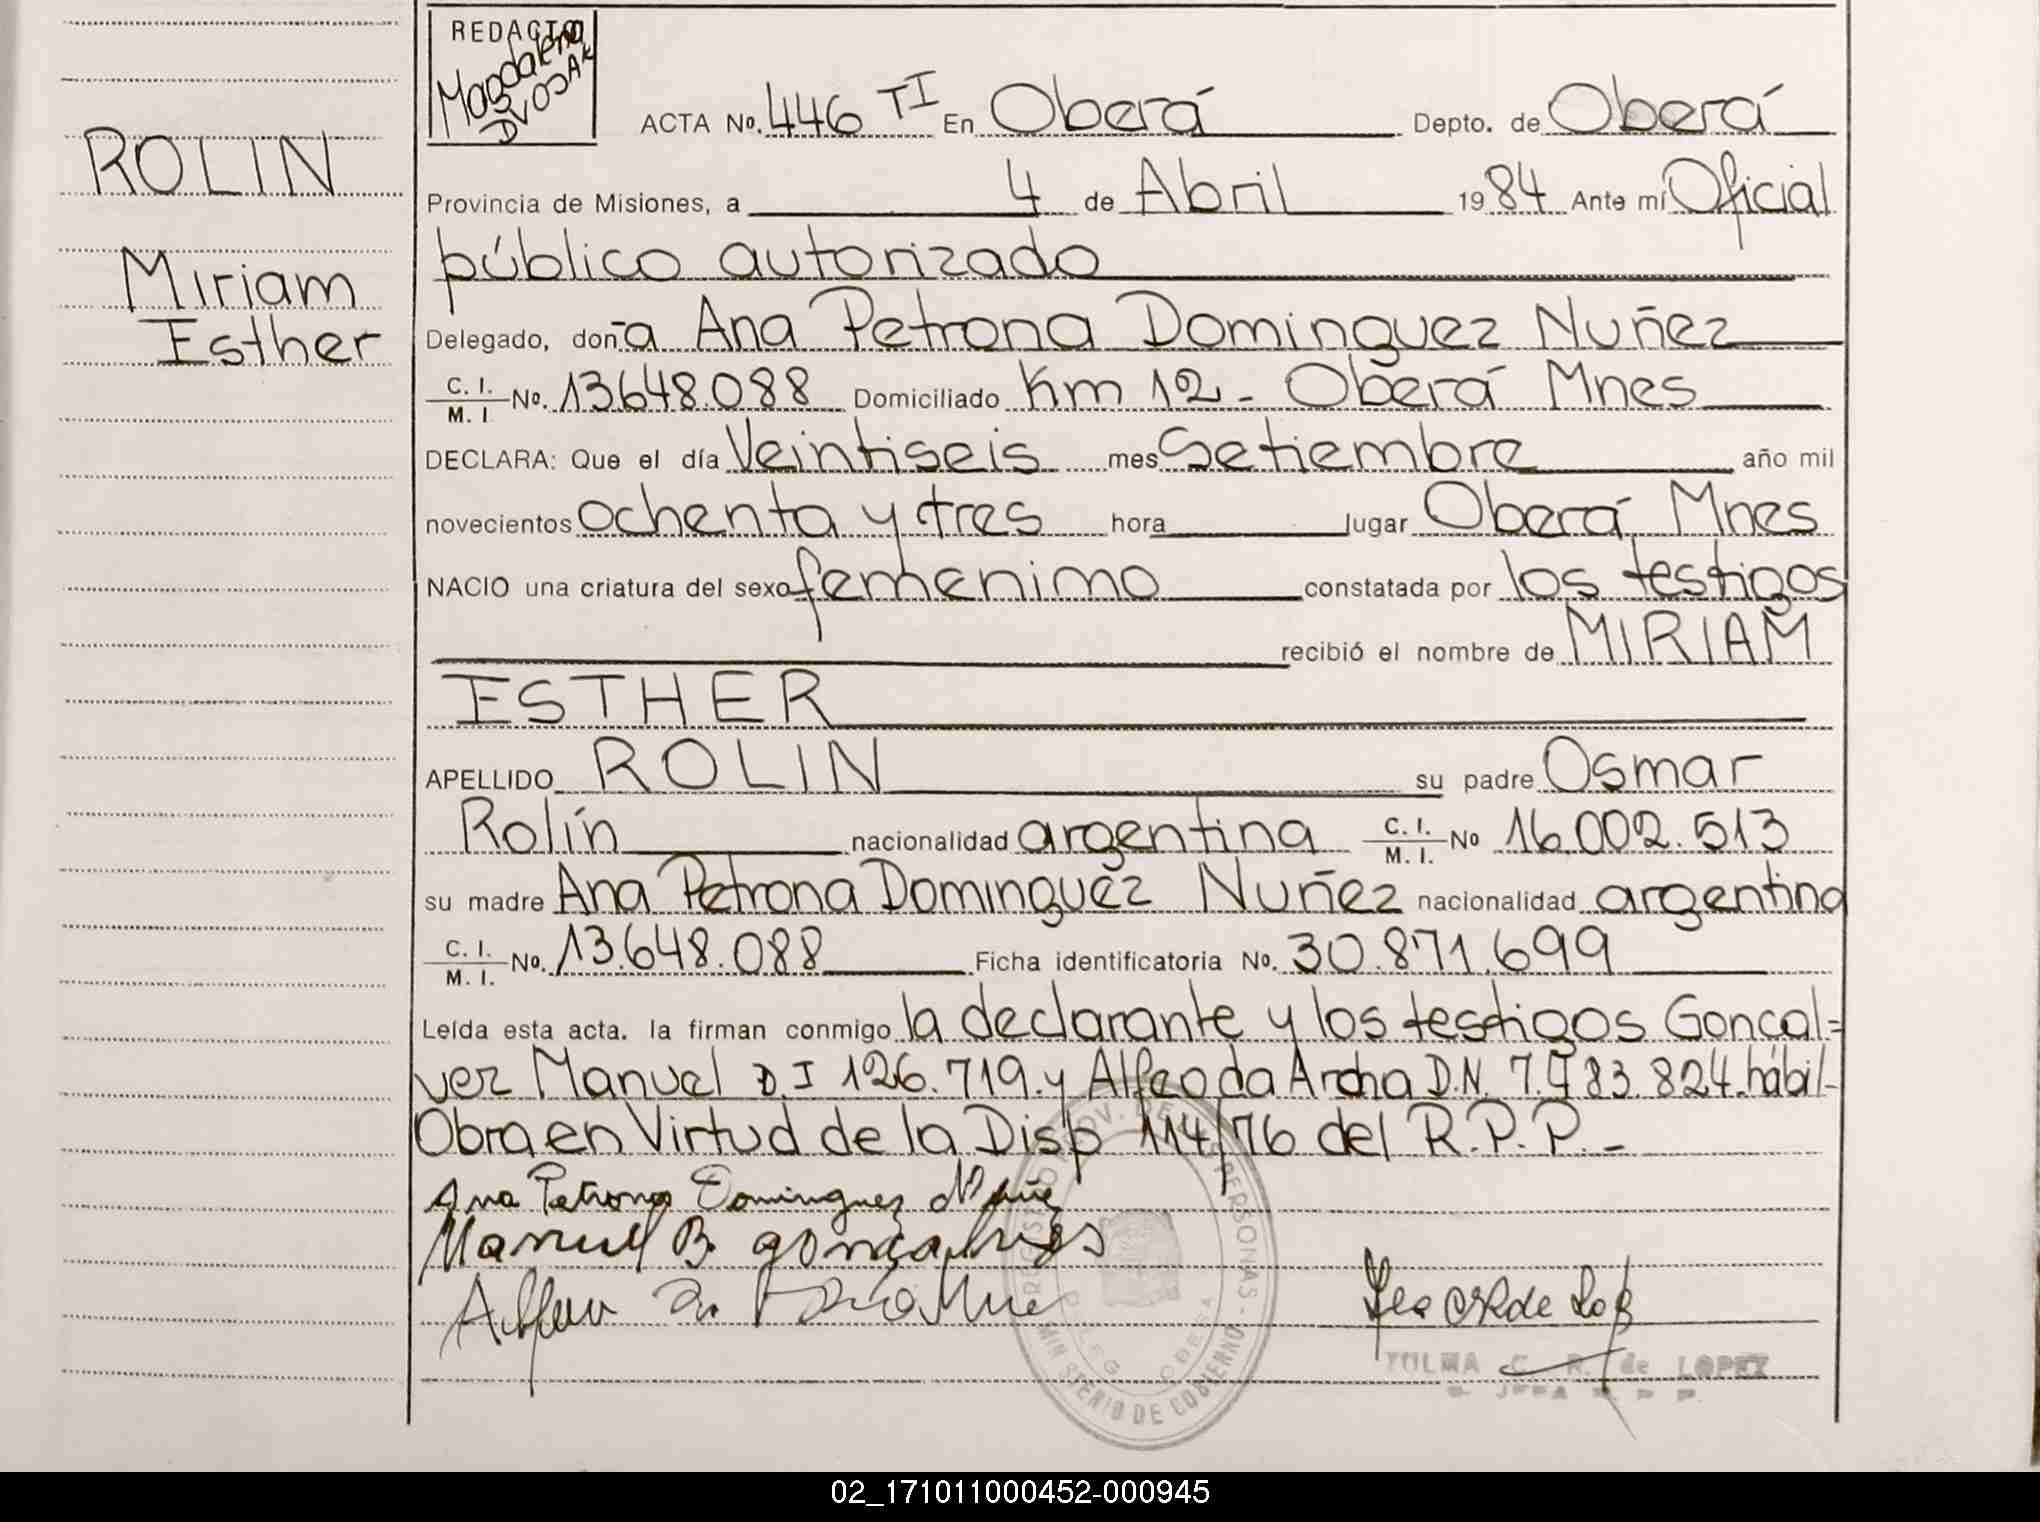 REDACTO
Magdalena
DVOJAK
ACTA No. 446 TI En Oberá Depto. de Oberá
ROLIN
Provincia de Misiones, a 4 de Abril 1984 Ante mí Oficial
público autorizado
Miriam
Esther
Delegado, don-a Ana Petrona Dominguez Nuñez
C. I. / M. I No. 13648.088 Domiciliado Km 12 - Oberá Mnes
DECLARA: Que el día Veintiseis mes Setiembre año mil
novecientos ochenta y tres hora lugar Oberá Mnes
NACIO una criatura del sexo femenimo constatada por los testigos
recibió el nombre de MIRIAM
ESTHER
APELLIDO ROLIN su padre Osmar
Rolín nacionalidad argentina C. I. / M. I. No 16.002.513
su madre Ana Petrona Dominguez Nuñez nacionalidad argentina
C. I. / M. I. No. 13.648.088 Ficha identificatoria No. 30.871.699
Leída esta acta. la firman conmigo la declarante y los testigos Goncal=
vez Manuel D.I 126.719. y Alfeo da Archa D.N. 7.983.824. hábil-
Obra en Virtud de la Disp 114/76 del R.P.P.-
Ana Petrona Dominguez Nuñe
Manuel B. gonçalves
Alfeu da
REGISTRO PROV. DE LAS PERSONAS - MINISTERIO DE GOBIERNO
DELEG OBERA
YOLMA C. R. de LOPEZ
JEFA R P P
02_171011000452-000945